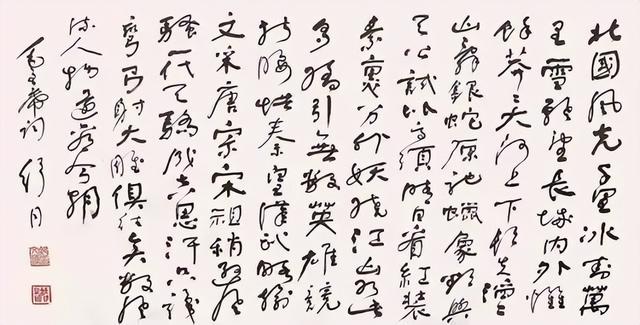 北國風光千里冰封萬
里雪飄望長城內外惟
餘莽々大河上下頓失滔々
山舞銀蛇原馳蠟象欲與
天公試比高須晴日看紅裝
素裹分外妖嬈江山如此
多嬌引無數英雄競
折腰惜秦皇漢武略輸
文采唐宗宋祖稍遜風
騷一代天驕成吉思汗只識
彎弓射大雕俱往矣數風
流人物還看今朝
毛主席詞 舒同